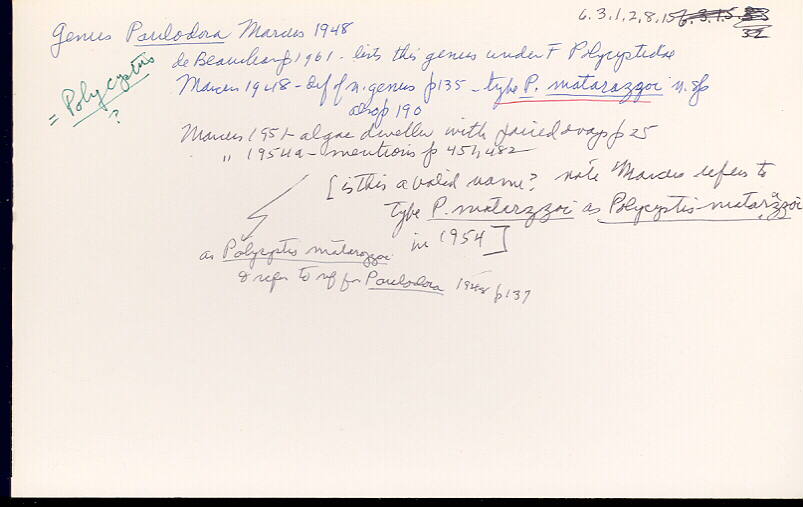 6.3.1.2.8.15
32
Genus Paulodora Marcus 1948
= Polycystis
?
de Beauchamp 1961 - lists this genus under F Polycystidae
Marcus 1948 - def of n. genus p135 - type P. matarazzoi n. sp
also p 190
Marcus 1951 - algae dweller with paired ovary p 25
" 1954a - mentions p 451, 482
[is this a valid name? note Marcus refers to
type P. matarazzoi as Polycystis matarazzoi
in 1954]
as Polycystis matarazzoi
& refer to ref for Paulodora 1948 p137